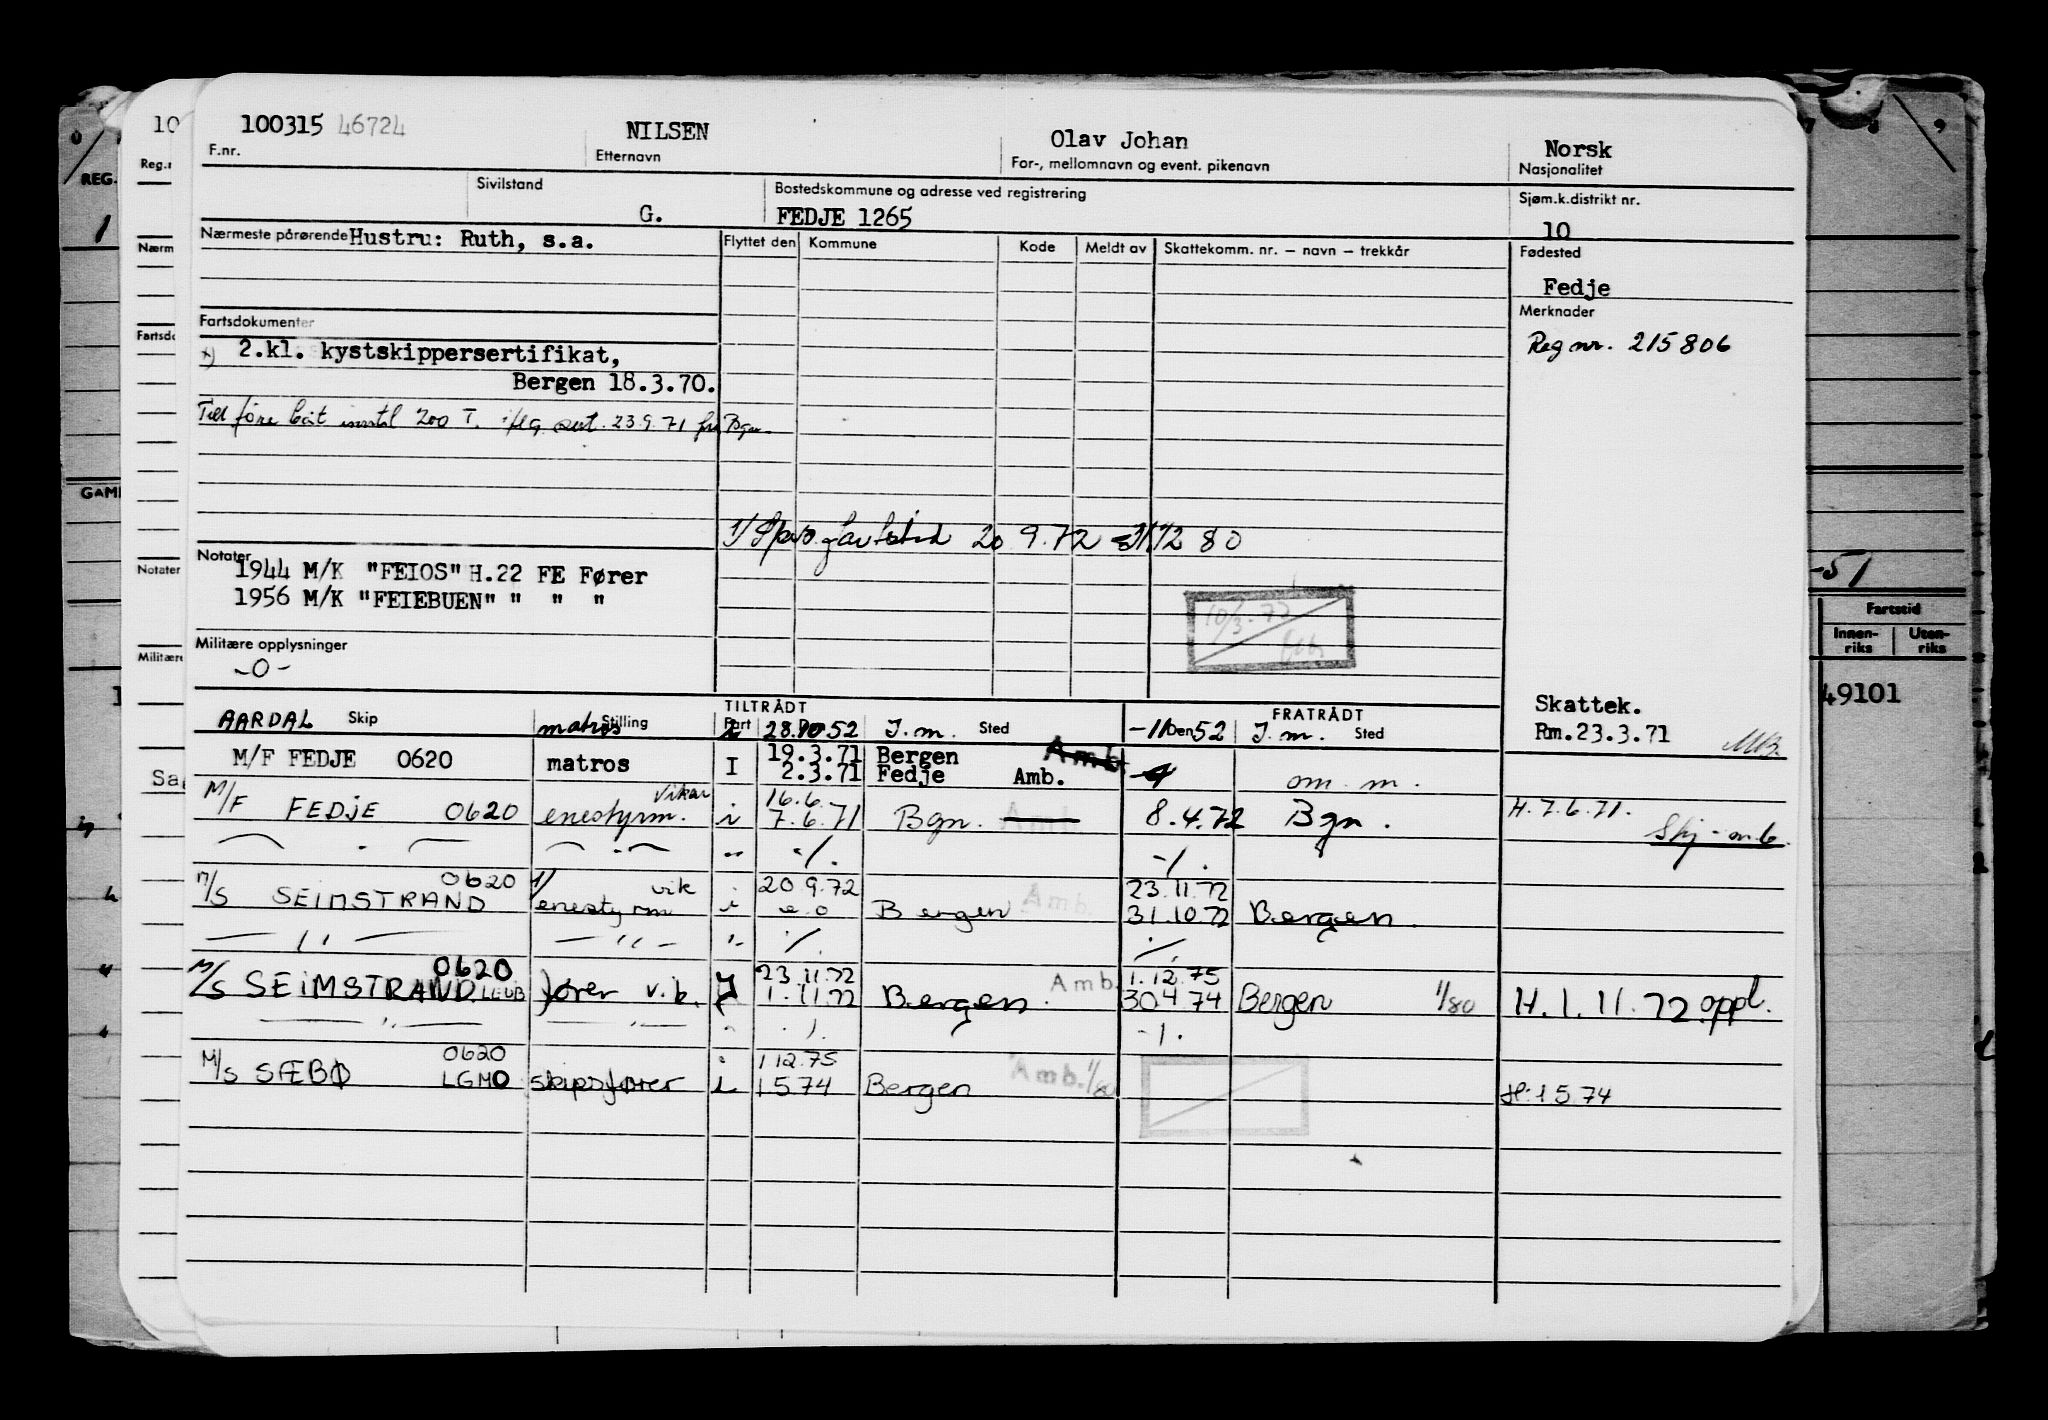 100315 46724 NILSEN Olav Johan Norsk
F.nr. Etternavn For-, mellomnavn og event. pikenavn Nasjonalitet
Sivilstand Bostedskommune og adresse ved registrering Sjøm.k.distrikt nr.
G. FEDJE 1265 10
Nærmeste pårørende Hustru: Ruth, s.a. Flyttet den Kommune Kode Meldt av Skattekomm. nr. – navn – trekkår Fødested
Fedje
Fartsdokumenter Merknader
x) 2.kl. kystskippersertifikat, Reg nr. 215806
Bergen 18.3.70.
Till føre båt inntil 200 T. iflg sert. 23.9.71 fra Bgn.
1/ 20 9.72 80
Notater
1944 M/K "FEIOS" H.22 FE Fører
1956 M/K "FEIEBUEN" " " "
10/3-72
Militære opplysninger
-0-
Skattek.
TILTRÅDT FRATRÅDT
AARDAL Skip matros Stilling Fart 28.10 52 J.m. Sted -11 Den 52 J.m. Sted Rm.23.3.71
M/F FEDJE 0620 matros I 19.3.71 Bergen Amb.
2.3.71 Fedje Amb. om. m.
M/F FEDJE 0620 enestyrm. Vikar i 16.6. 7.6.71 Bgn. Amb. 8.4.72 Bgn. H.7.6.71.
- " - - " - " -/. -/.
M/S SEIMSTRAND 0620 1/ enestyrm vik i 20.9.72 Bergen Amb. 23.11.72
31.10.72 Bergen.
- " - - " - " -/. -/.
M/S SEIMSTRAND 0620 LEUB fører v.b. 23.11.72 Amb. 1.12.75
1.11.72 Bergen. 30 4 74 Bergen 1/80 H.1.11.72 oppl.
- " - - " - " -/. -/.
M/S SÆBØ 0620 LGMO skipsfører i 1 12.75
1 5 74 Bergen Amb. 1/80 H: 1 5 74
10
Reg.n
Nærm
Fartsdo
Notater
Militære
REG.
1
GAM
-51
Fartstid
Innen-riks Uten-riks
49101